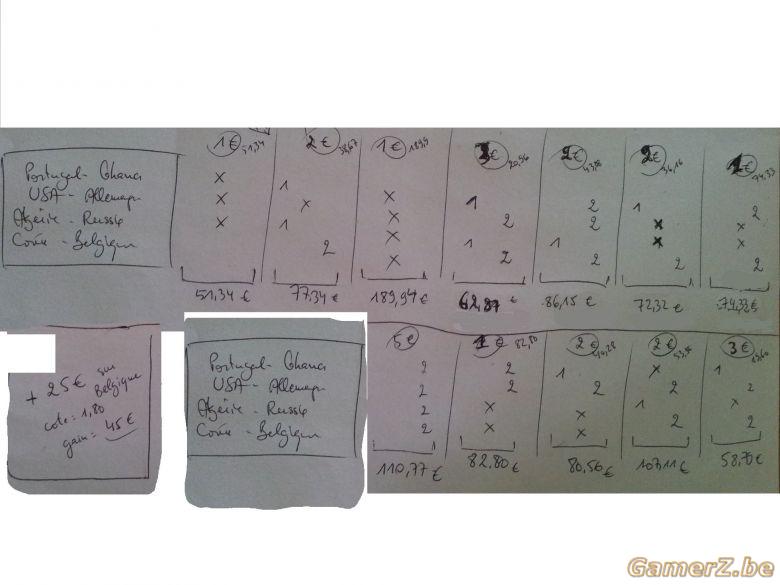 1€ 51,34 2€ 38,67 1€ 189,9 3€ 20,96 2€ 2€ 1€
Portugal - Ghana X 1 X 1 2 1 2
USA - Allemagn X X X 2 2 X X
Algérie - Russie X 1 X 1 1 X X
Corée - Belgique 2 X 2 2 2 2
51,34€ 77,34€ 189,94€ 62,87€ 86,15€ 72,32€ 74,33€
+ 25€ sur Belgique
cote = 1,80
gain = 45€
5€ 1€ 82,80 2€ 2€ 3€
Portugal - Ghana 2 2 1 X 1
USA - Allemagn 2 2 2 2 2
Algérie - Russie 2 X X 1 X
Corée - Belgique 2 X X 2 2
110,77€ 82,80€ 80,56€ 107,11€ 58,70€
GamerZ.be